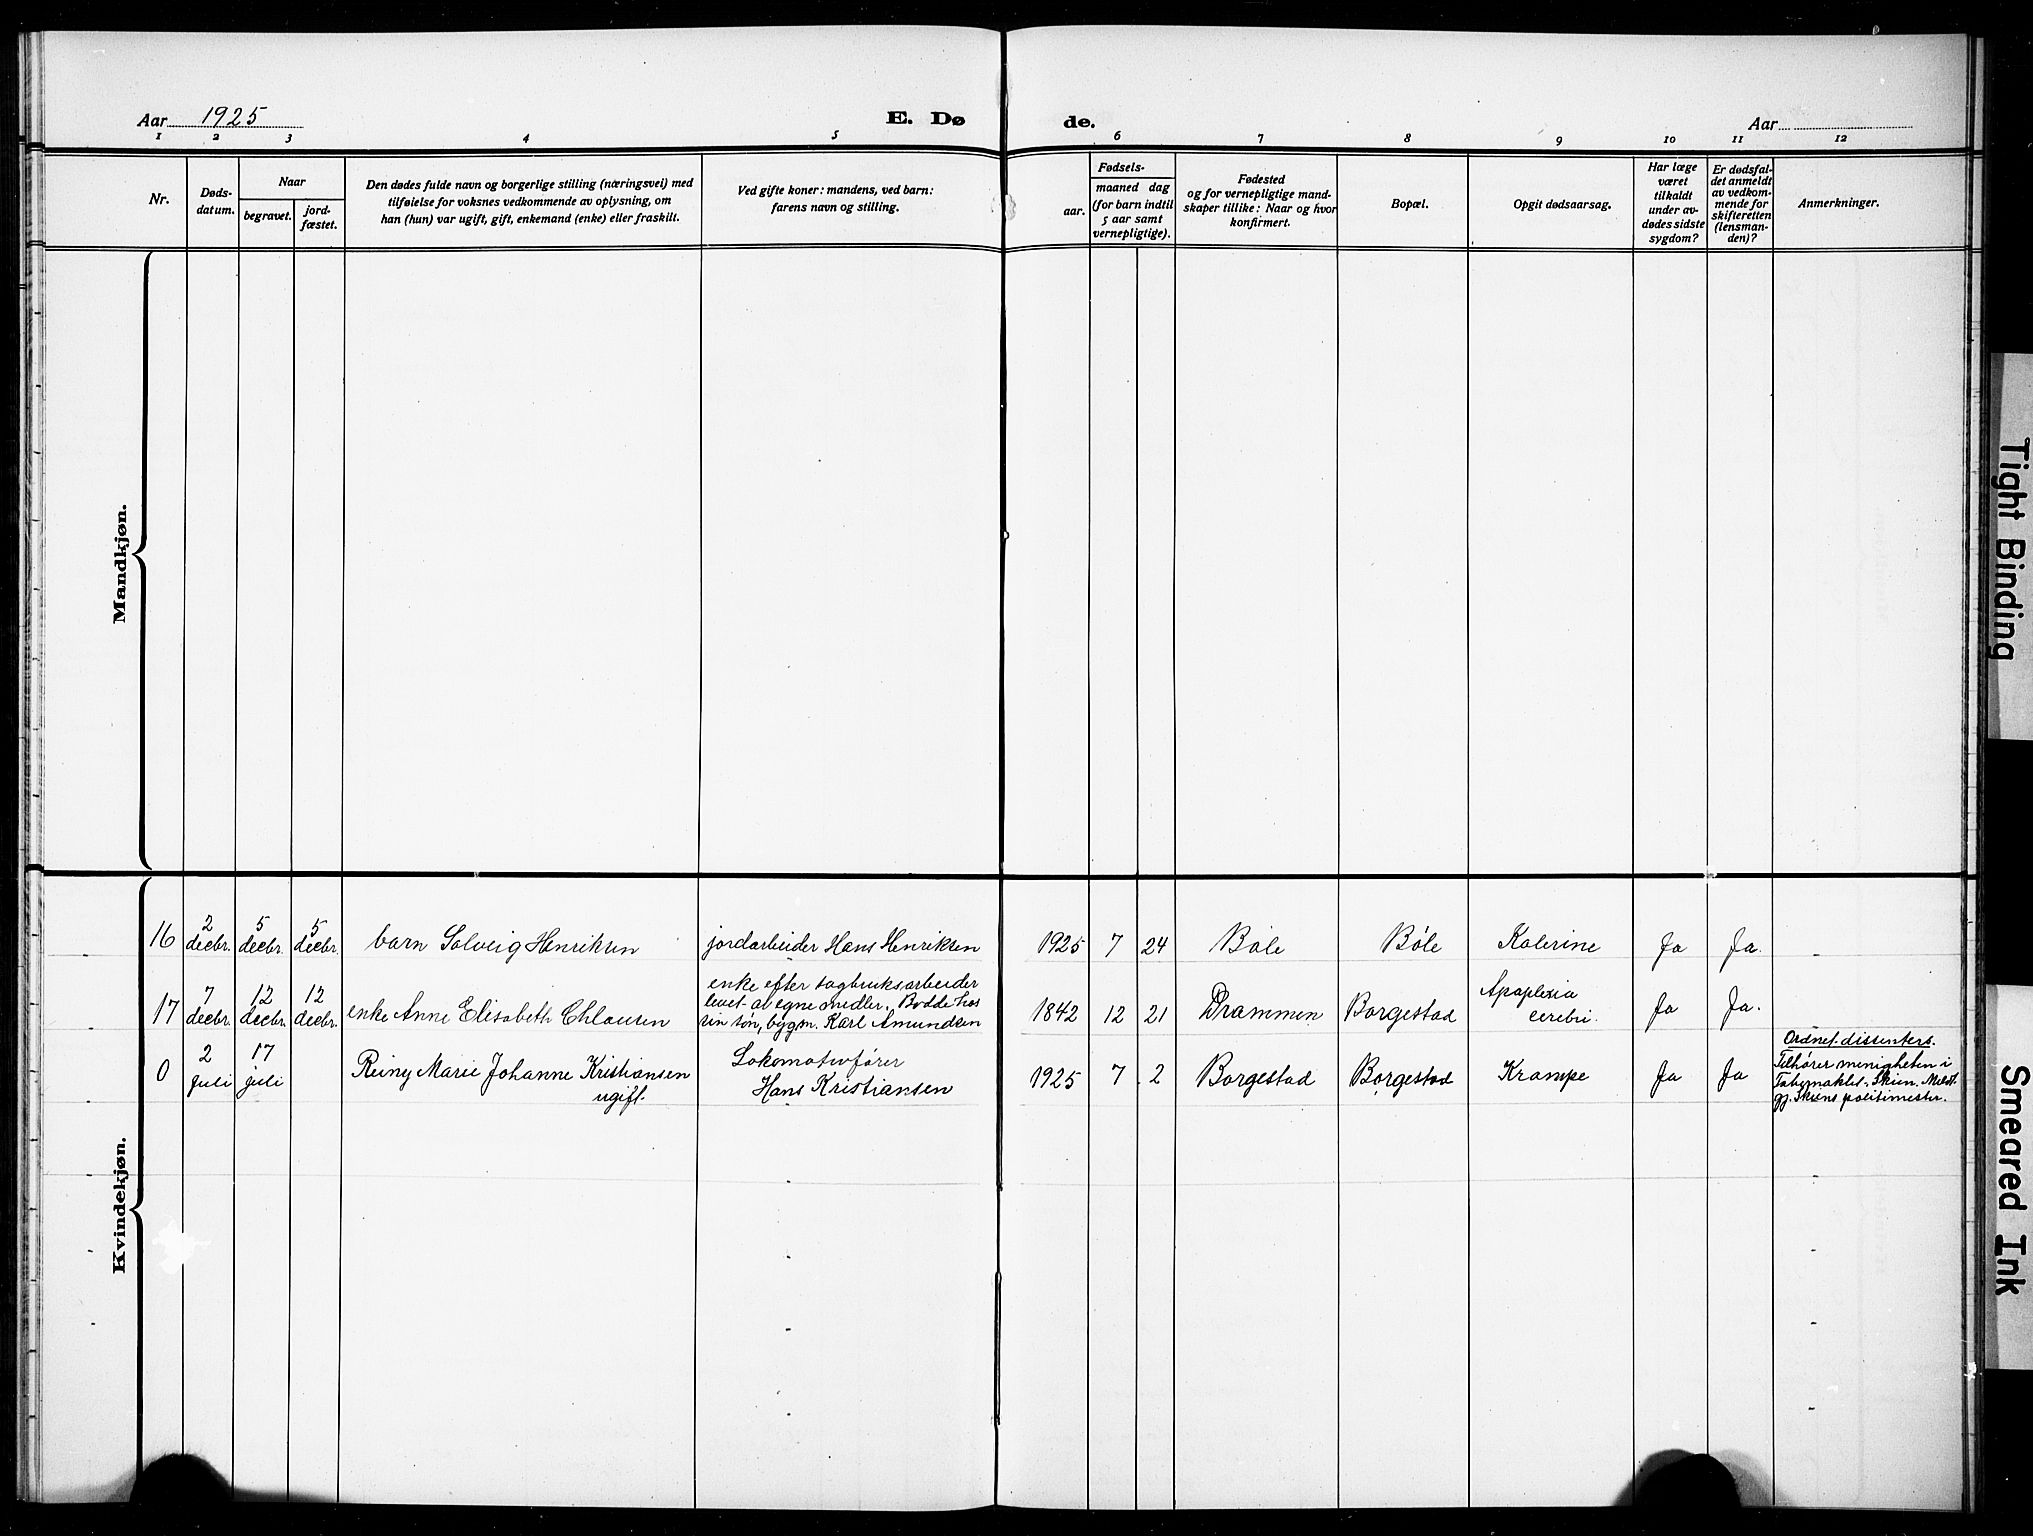 Aar 1925
E. Dø
de.
Aar
1 2 3 4 5 6 7 8 9 10 11 12
Nr.
Døds-
datum.
Naar
begravet.
jord-
fæstet.
Den dødes fulde navn og borgerlige stilling (næringsvei) med
tilføielse for voksnes vedkommende av oplysning, om
han (hun) var ugift, gift, enkemand (enke) eller fraskilt.
Ved gifte koner: mandens, ved barn:
farens navn og stilling.
Fødsels-
aar.
maaned dag
(for barn indtil
5 aar samt
vernepligtige).
Fødested
og for vernepligtige mand-
skaper tillike: Naar og hvor
konfirmert.
Bopæl.
Opgit dødsaarsag.
Har læge
været
tilkaldt
under av-
dødes sidste
sygdom?
Er dødsfal-
det anmeldt
av vedkom-
mende for
skifteretten
(lensman-
den)?
Anmerkninger.
Mandkjøn.
Kvindekjøn.
16
2
decbr.
5
decbr.
5
decbr.
barn Solveig Henriksen
jordarbeider Hans Henriksen
1925 7 24
Bøle
Bøle
Kolerine
Ja
Ja.
17
7
decbr.
12
decbr.
12
decbr.
enke Anne Elisabeth Chlausen
enke efter sagbruksarbeider
levet av egne midler. Bodde hos
sin søn, bygm. Karl Amundsen
1842 12 21
Drammen
Borgestad
Apoplexia
cerebri.
Ja
Ja.
0
2
juli
17
juli
Reiny Marie Johanne Kristiansen
ugift.
Lokomotivfører
Hans Kristiansen
1925 7 2
Borgestad
Borgestad
Krampe
Ja
Ja
Ordnet dissenters.
Tilhører menigheten i
Tabernaklet, Skien. Meldt
gj. Skiens politimester.
Tight Binding
Smeared Ink